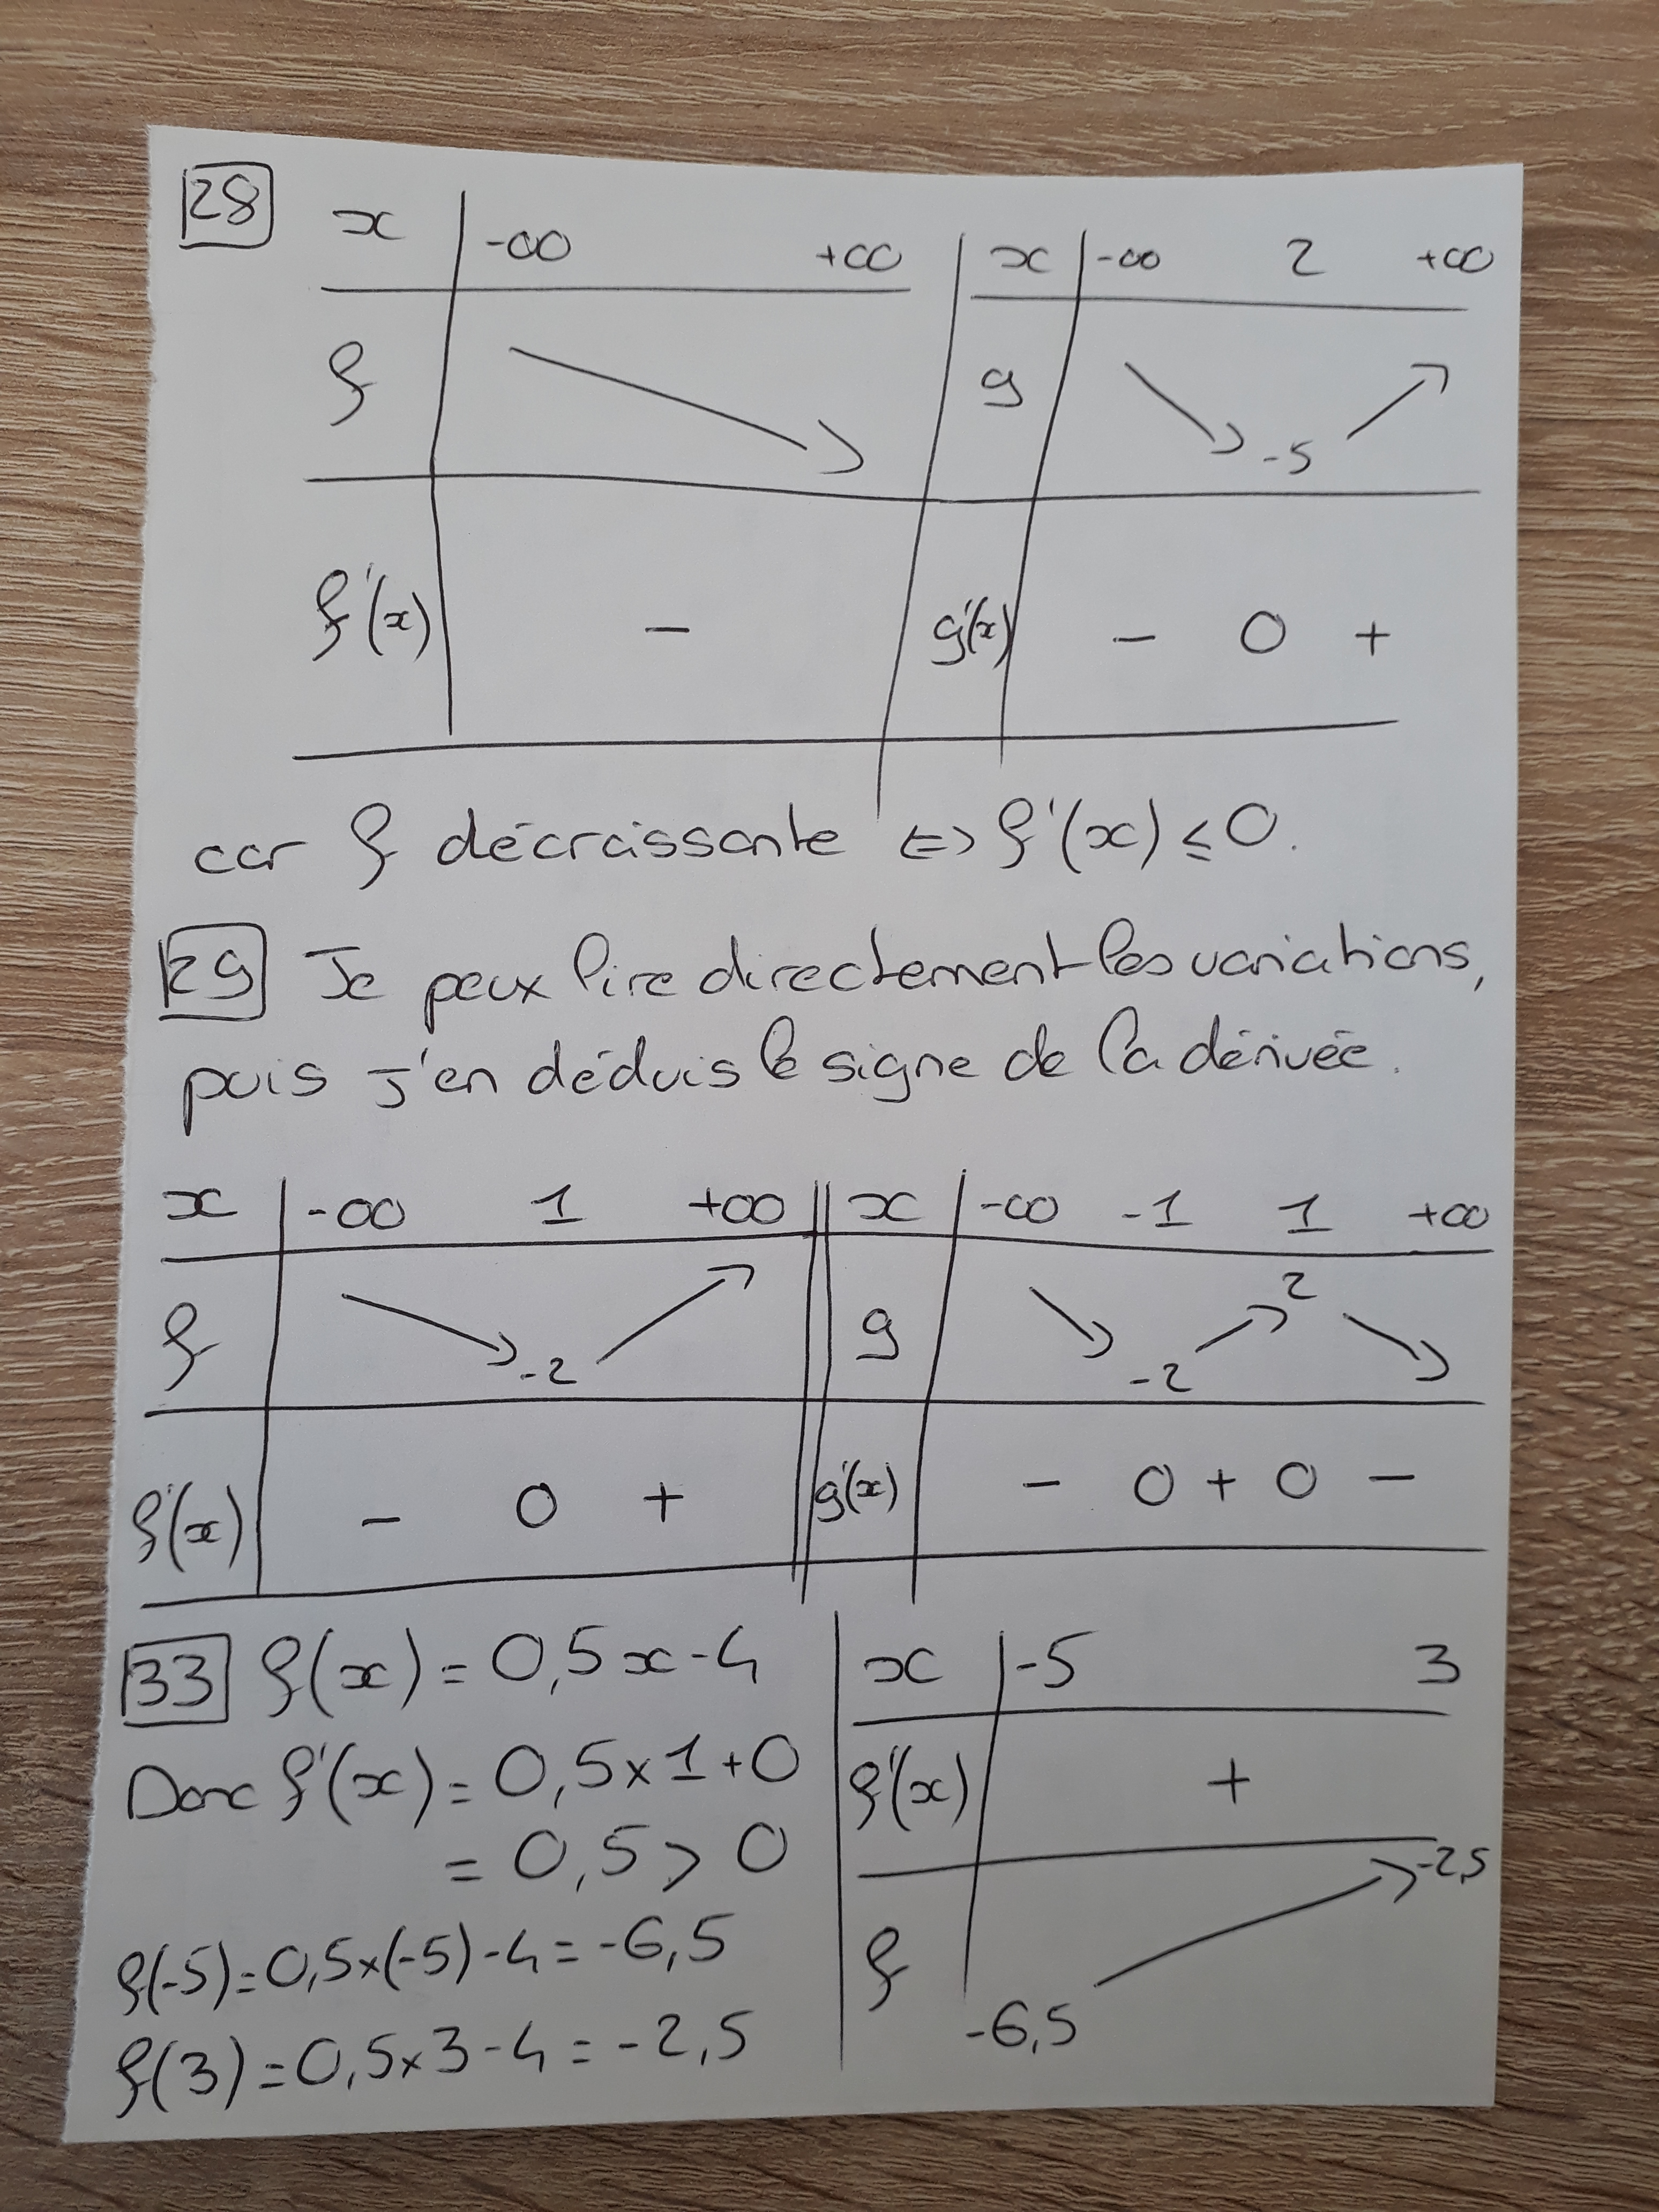 28
x | -∞ +∞ | x | -∞ 2 +∞
f | g | -5
f'(x) | - | g'(x) | - 0 +
car f décroissante ⇔ f'(x) ≤ 0.
29 Je peux lire directement les variations,
puis j'en déduis le signe de la dérivée.
x | -∞ 1 +∞ || x | -∞ -1 1 +∞
f | -2 || g | -2 2
f'(x) | - 0 + || g'(x) | - 0 + 0 -
33 f(x) = 0,5x - 4
Donc f'(x) = 0,5 × 1 + 0
= 0,5 > 0
f(-5) = 0,5 × (-5) - 4 = -6,5
f(3) = 0,5 × 3 - 4 = -2,5
x | -5 3
f'(x) | +
f | -6,5 -2,5